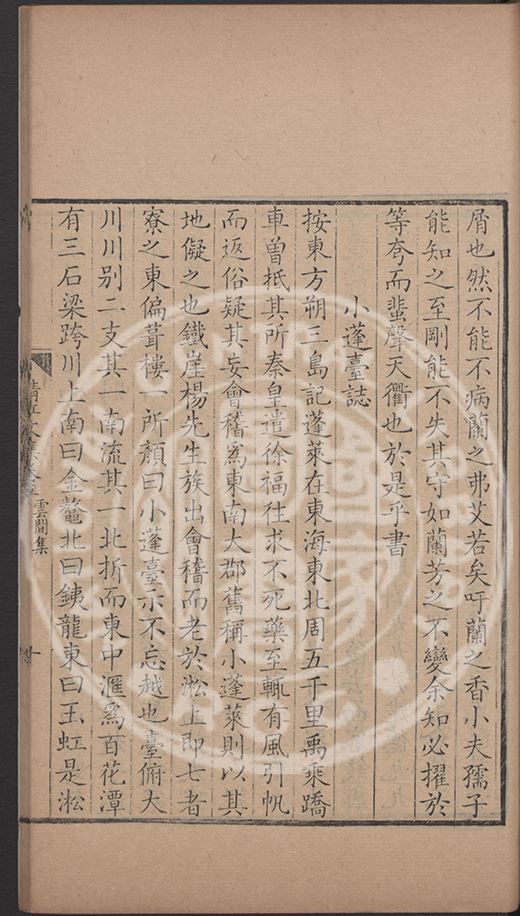 屑也然不能不病蘭之弗艾若矣吁蘭之香小夫孺子
能知之至剛能不失其守如蘭芳之不變余知必擢於
等夸而蜚聲天衢也於是乎書
小蓬臺誌
按東方朔三島記蓬萊在東海東北周五千里禹乘蹻
車曾抵其所秦皇遣徐福往求不死藥至輒有風引帆
而返俗疑其妄會稽爲東南大郡舊稱小蓬萊則以其
地儗之也鐵崖楊先生族出會稽而老於淞上即七者
寮之東偏葺樓一所顏曰小蓬臺示不忘越也臺俯大
川川別二支其一南流其一北折而東中滙爲百花潭
有三石梁跨川上南曰金鼇北曰銕龍東曰玉虹是淞
清江 雲間集